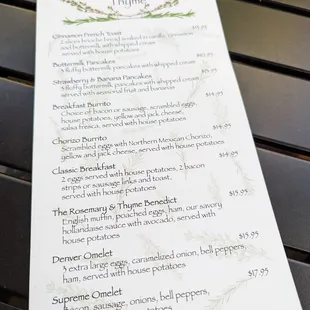 Thyme
Cinnamon French Toast $15.95
2 slices brioche bread soaked in vanilla, cinnamon
and buttermilk with whipped cream
served with seasonal fruit
Buttermilk Pancakes
3 fluffy buttermilk pancakes with whipped cream
Strawberry & Banana Pancakes
3 fluffy buttermilk pancakes with whipped cream
served with seasonal fruit and bananas
Breakfast Burrito
Choice of bacon or sausage, scrambled eggs,
house potatoes, yellow and jack cheese,
salsa fresca, served with house potatoes
Chorizo Burrito $14.95
Scrambled eggs with Northern Mexican Chorizo,
yellow and jack cheese, served with house potatoes
Classic Breakfast $14.95
2 eggs served with house potatoes, 2 bacon
strips or sausage links and toast.
served with house potatoes
The Rosemary & Thyme Benedict $15.95
English muffin, poached eggs, ham, our savory
hollandaise sauce with avocado, served with
house potatoes
Denver Omelet $15.95
3 extra large eggs, caramelized onion, bell peppers,
ham, served with house potatoes
Supreme Omelet $17.95
bacon, sausage, onions, bell peppers,
potatoes